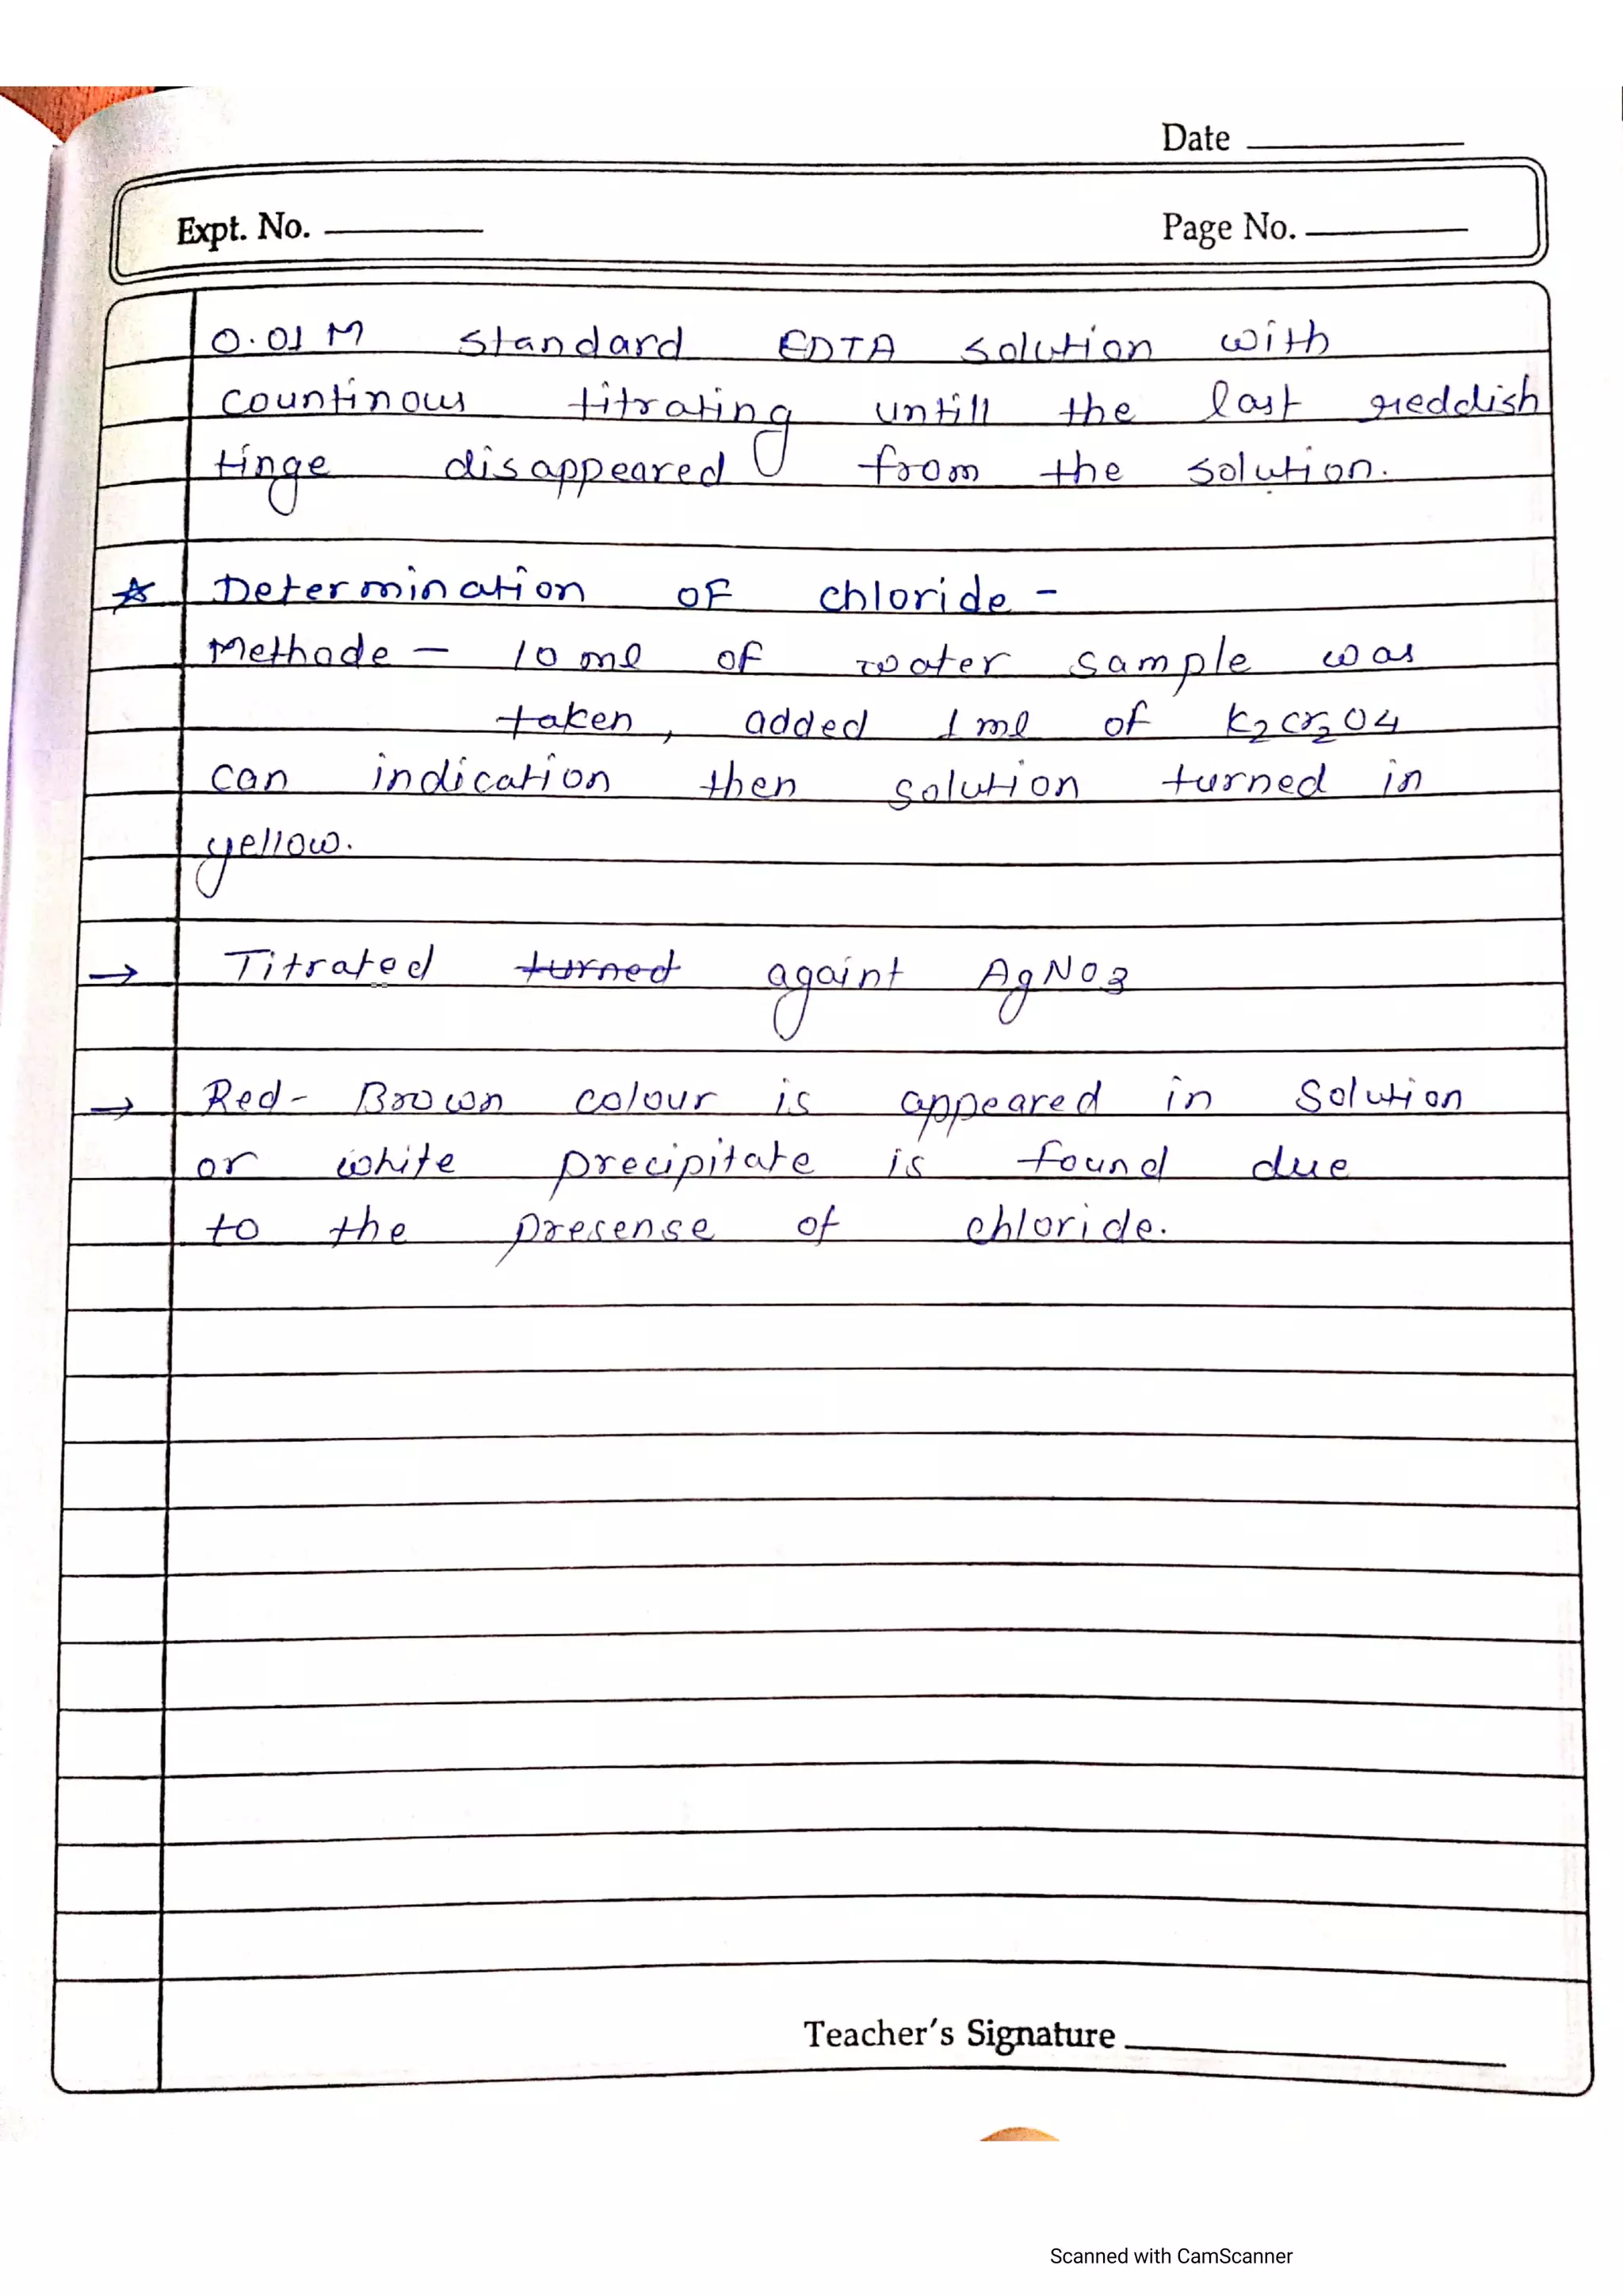 Date
Expt. No.
Page No.
0.01 M standard EDTA solution with
countinous titrating untill the last reddish
tinge disappeared from the solution.
☆ Determination OF chloride -
Methode - 10 ml of water sample was
taken, added 1 ml of K2Cr2O4
can indication then solution turned in
yellow.
→ Titrated turned againt AgNO3
→ Red-Brown colour is appeared in Solution
or white precipitate is found due
to the presense of chloride.
Teacher's Signature
Scanned with CamScanner